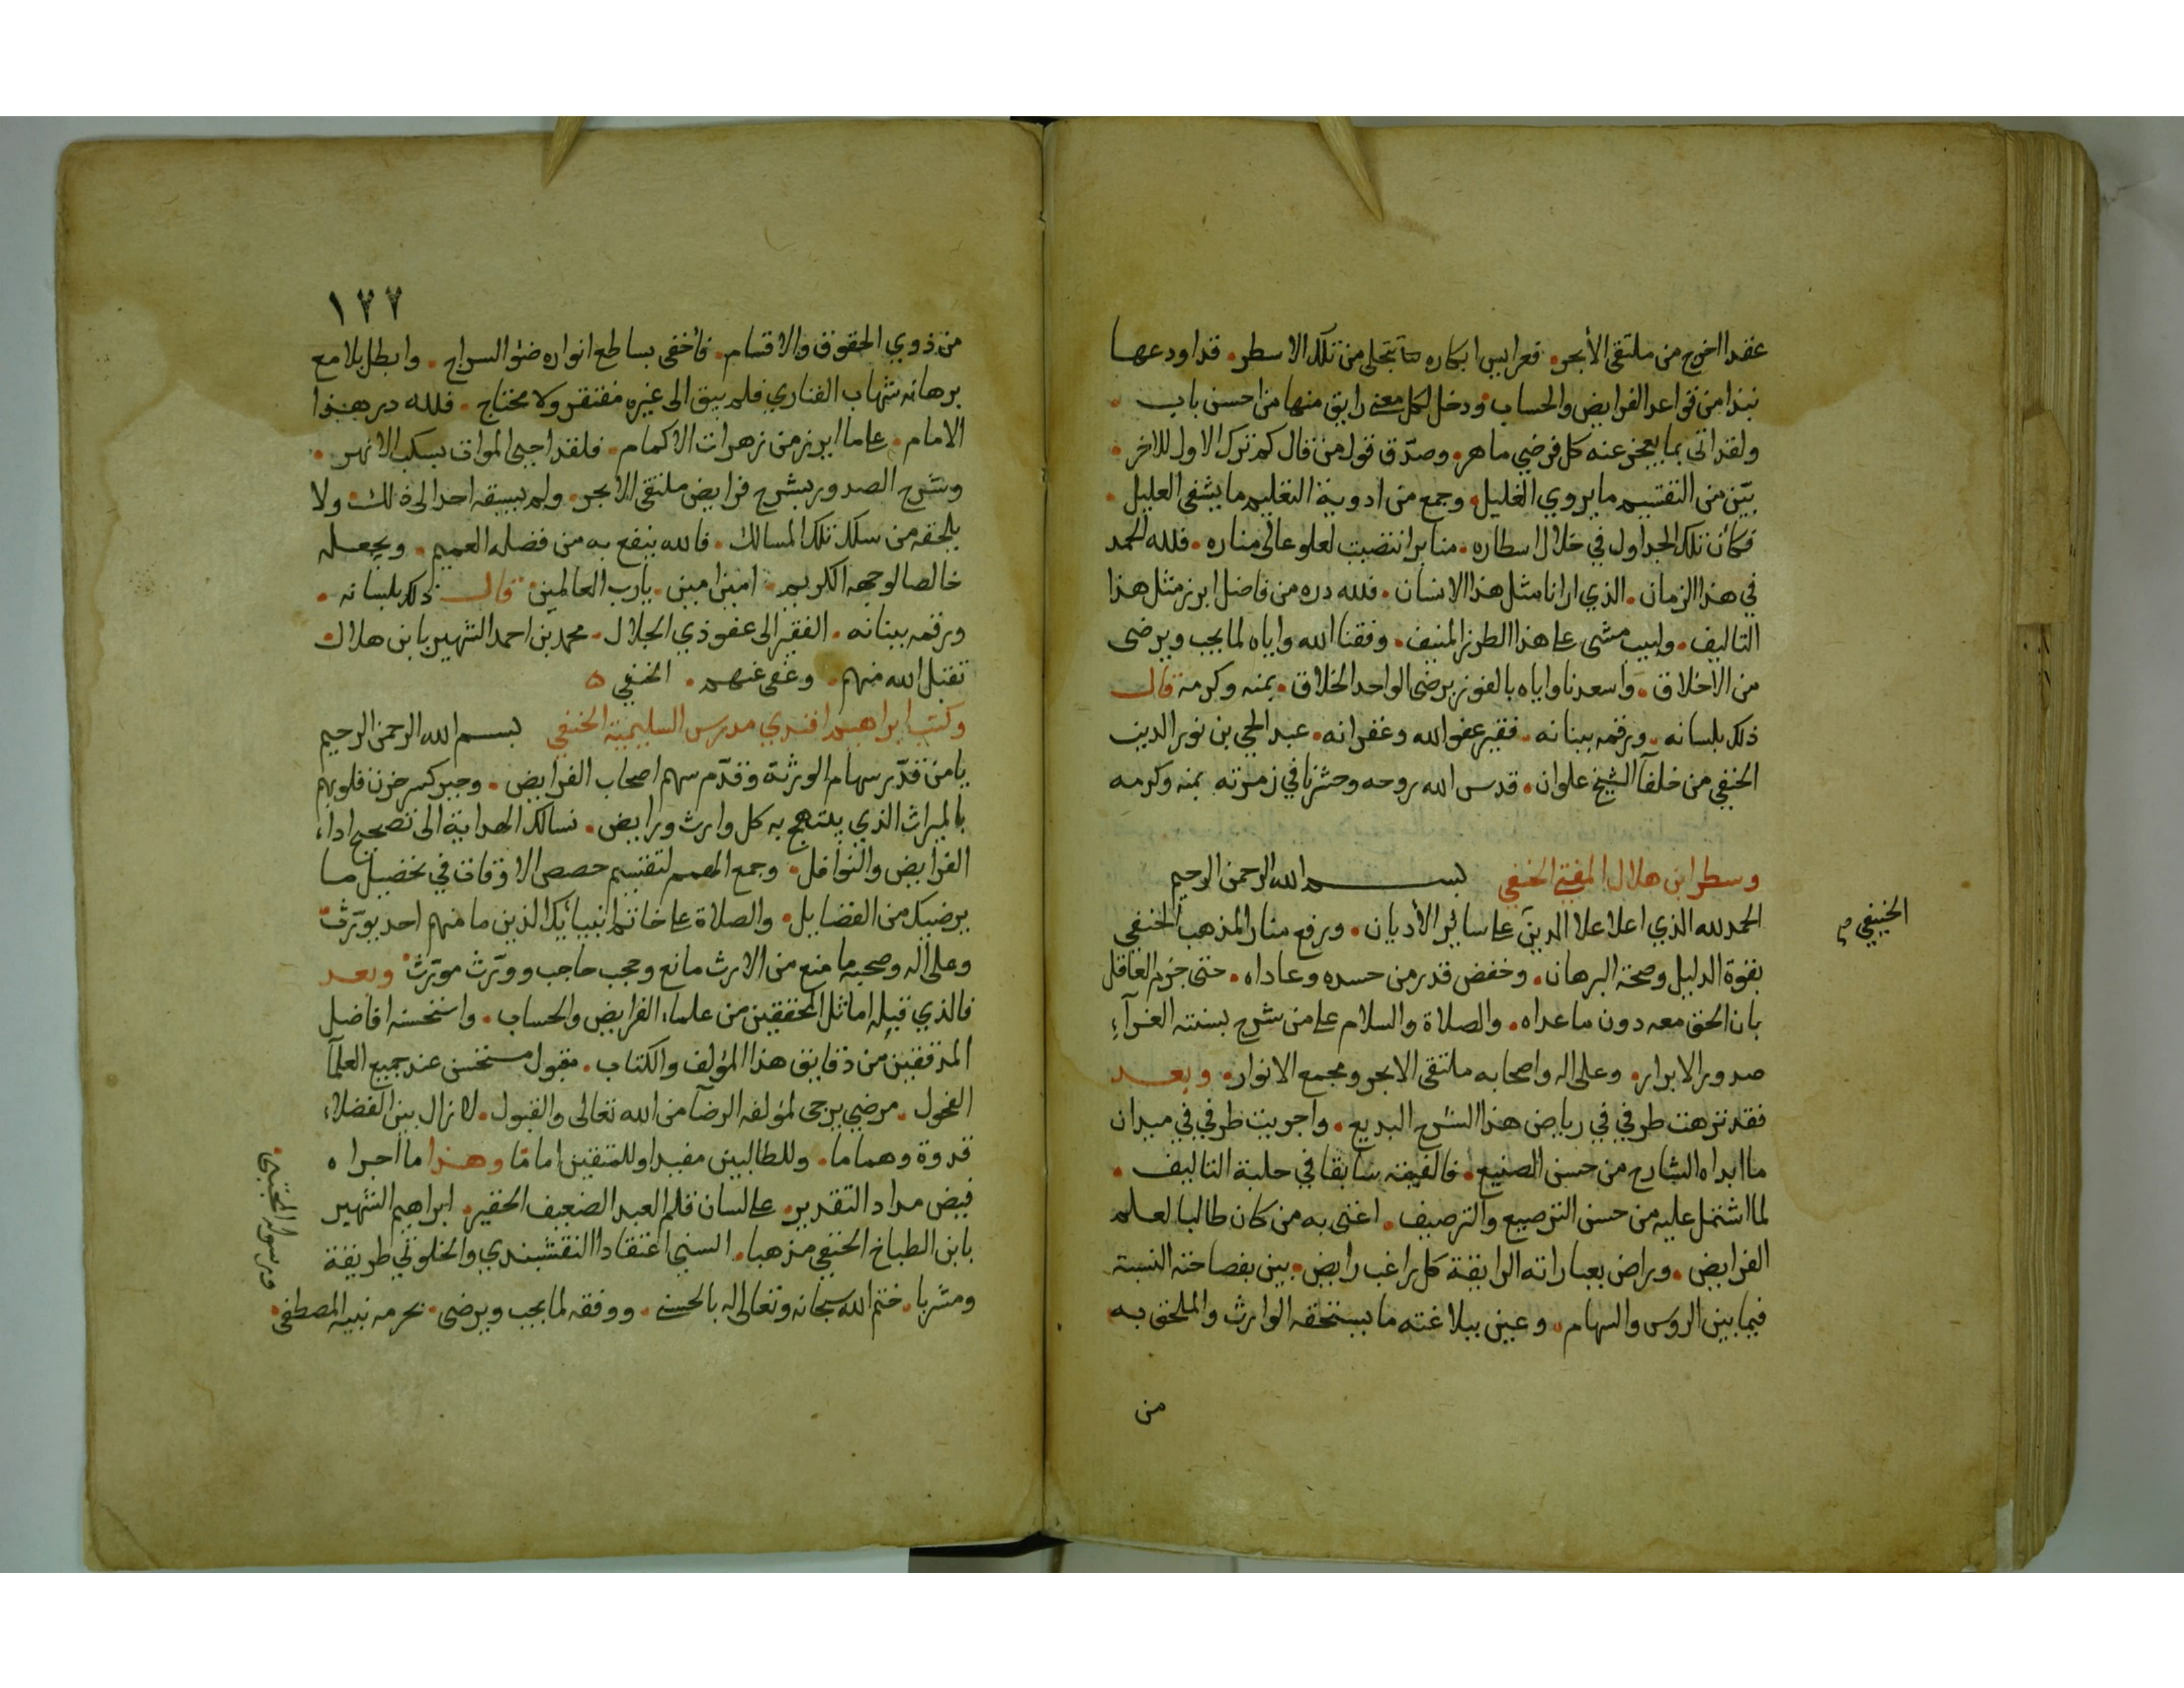 عقد اخرج من ملتقى الأبحر فعرايس ابكاره تتجلى من تلك الاسطر قد اودعها
نبذا من قواعد الفرايض والحساب ودخل لكل معنى رايق منها من احسن باب
ولقد اتى بما يعجز عنه كل فرضي ماهر وصدّق قول من قال كم ترك الاول للاخر
بيّن من التقسيم ما يروي الغليل وجمع من ادوية التعليم ما يشفى العليل
فكأن تلك الجداول في خلال اسطاره منابر انتضبت لعلو عالى مناره فلله الحمد
في هذا الزمان الذي ارانا مثل هذا الانسان فلله دره من فاضل ابرز مثل هذا
التاليف ولبيب مشى على هذا الطرز المنيف وفقنا الله واياه لما يحب ويرضى
من الاخلاق واسعدنا واياه بالفوز برضى الواحد الخلاق بمنه وكرمه قال
ذلك بلسانه ورقمه ببنانه فقير عفو الله وغفرانه عبد الحي بن نور الدين
الحنفي من خلفآ الشيخ علوان قدس الله روحه وحشرنا في زمرته بمنه وكرمه
وسطر ابن هلال المفتى الحنفي بسم الله الرحمن الرحيم
الحمد لله الذي اعلا علا الدين على سائر الأديان ورفع منار المذهب الحنفي
الحنيفي صح
بقوة الدليل وصحة البرهان وخفض قدر من حسده وعاداه حتى جزم العاقل
بان الحق معه دون ما عداه والصلاة والسلام على من شرح بسنته الغرآء
صدور الابرار وعلى اله واصحابه ملتقى الابحر ومجمع الانوار وبعد
فقد نزهت طرفي في رياض هذا الشرح البديع واجريت طرفي في ميدان
ما ابداه الشارح من حسن الصنيع فالفيته سابقا في حلبة التاليف
لما اشتمل عليه من حسن الترصيع والترصيف اغنى به من كان طالبا لعلم
الفرايض وراض بعباراته الرايقة كل راغب رايض بين بفصاحته النسبة
فيما بين الروس والسهام وعين ببلاغته ما يستحقه الوارث والملحق به
من
١٢٧
من ذوي الحقوق والاقسام فأخفى بساطع انواره ضؤ السراج وابطل بلامع
برهانه شهاب الفناري فلم يبق الى غيره مفتقر ولا محتاج فلله در هذا
الامام على ما ابرز من زهرات الاكمام فلقد احيى الموات بسكب الانهر
وشرح الصدور بشرح فرايض ملتقى الابحر ولم يسبقه احد الى ذلك ولا
يلحقه من سلك تلك المسالك فالله ينفع به من فضله العميم ويجعله
خالصا لوجهه الكريم امين امين يارب العالمين قال ذلك بلسانه
ورقمه ببنانه الفقير الى عفو ذي الجلال محمد بن احمد الشهير بابن هلال
تقبل الله منهم وعفى عنهم الحنفي ه
وكتب ابراهيم افندي مدرس السليمية الحنفي بسم الله الرحمن الرحيم
يا من قدّر سهام الورثة وقدّم سهم اصحاب الفرايض وجبر كسر حزن قلوبهم
بالميراث الذي يبتهج به كل وارث ورايض نسالك الهداية الى تصحيح اداء
الفرايض والنوافل وجمع الهمم لتقسيم حصص الاوقات في تحصيل ما
يرضيك من الفضايل والصلاة على خاتم انبيائك الذين ما منهم احد يورّث
وعلى اله وصحبه ما منع من الارث مانع وحجب حاجب وورّث مورّث وبعد
فالذي قبله اماثل المحققين من علماء الفرايض والحساب واستحسنه افاضل
المدققين من دقايق هذا المؤلف والكتاب مقبول مستحسن عند جميع العلمآ
الفحول مرضي يرجى لمؤلفه الرضآ من الله تعالى والقبول لا زال بين الفضلاء
قدوة وهماما وللطالبين مفيدا وللمتقين امامّا وهذا ما اجراه
فيض مداد التقدير على لسان قلم العبد الضعيف الحقير ابراهيم الشهير
بابن الطباخ الحنفي مذهبا السني اعتقادا النقشبندي والخلوتي طريقة
ومشربا ختم الله سبحانه وتعالى له بالحسنى ووفقه لما يحب ويرضى بحرمه نبيه المصطفى
ورسوله المجتبى